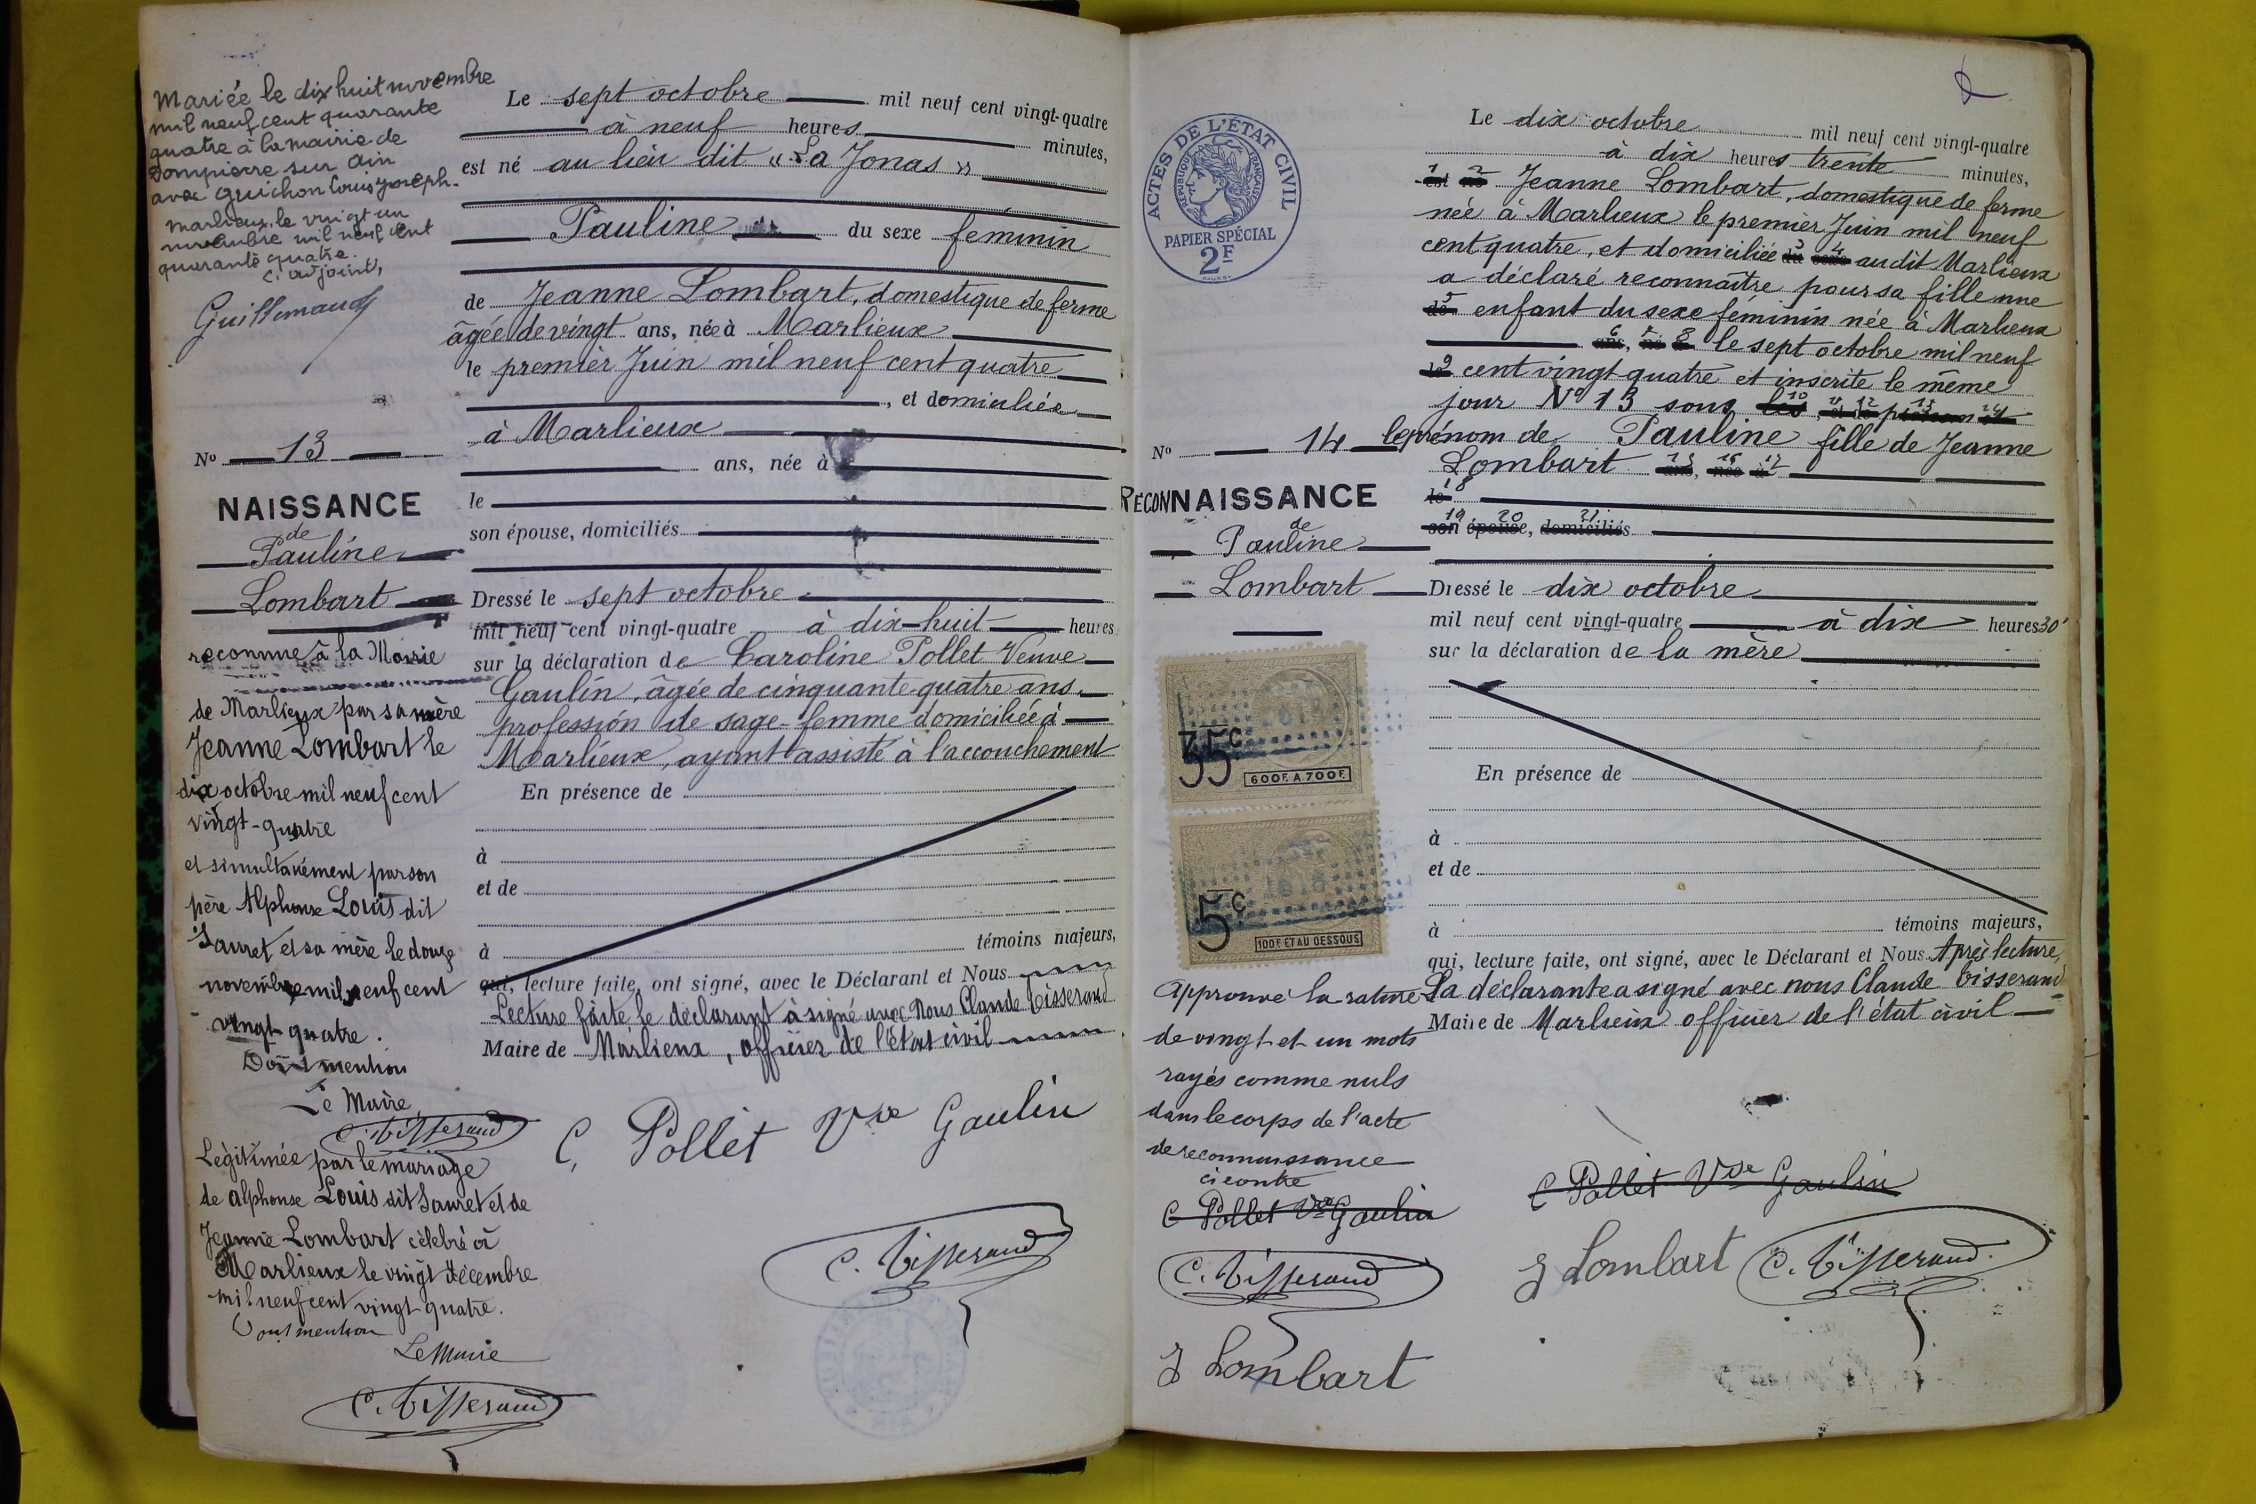 Mariée le dix huit novembre
mil neuf cent quarante
quatre à la mairie de
Dompierre sur Ain
avec Guichon Louis Joseph.
Marlieux, le vingt un
novembre mil neuf cent
quarante quatre.
L'adjoint,
Guillemaud
No 13
NAISSANCE
de
Pauline
Lombart
reconnue à la Mairie
de Marlieux par sa mère
Jeanne Lombart le
dix octobre mil neuf cent
vingt-quatre
et simultanément par son
père Alphonse Louis dit
Sauret et sa mère le douze
novembre mil neuf cent
vingt-quatre.
Dont mention
Le Maire
C. Tisserand
Légitimée par le mariage
de Alphonse Louis dit Sauret et de
Jeanne Lombart célébré à
Marlieux le vingt décembre
mil neuf cent vingt quatre.
Dont mention
Le Maire
C. Tisserand
Le sept octobre mil neuf cent vingt-quatre
à neuf heures minutes,
est né au lieu dit « La Jonas »
Pauline du sexe féminin
de Jeanne Lombart, domestique de ferme
âgée de vingt ans, née à Marlieux
le premier Juin mil neuf cent quatre
, et domiciliée
à Marlieux
ans, née à
le
son épouse, domiciliés
Dressé le sept octobre
mil neuf cent vingt-quatre à dix-huit heures
sur la déclaration de Caroline Pollet Veuve
Gaulin, âgée de cinquante-quatre ans
profession de sage-femme domiciliée à
Marlieux, ayant assisté à l'accouchement
En présence de
à
et de
à témoins majeurs,
qui, lecture faite, ont signé, avec le Déclarant et Nous
Lecture faite, le déclarant à signé avec Nous Claude Tisserand
Maire de Marlieux, officier de l'État civil
C. Pollet Vve Gaulin
C. Tisserand
ACTES DE L'ÉTAT CIVIL
RÉPUBLIQUE FRANÇAISE
PAPIER SPÉCIAL
2F
No 14
RECONNAISSANCE
de
Pauline
Lombart
35c
600F. A 700F.
5c
100F. ET AU DESSOUS
Approuvé la rature
de vingt et un mots
rayés comme nuls
dans le corps de l'acte
de reconnaissance
ci contre
C Pollet Vve Gaulin
C. Tisserand
J Lombart
Le dix octobre mil neuf cent vingt-quatre
à dix heures trente minutes,
1 est 2 né Jeanne Lombart, domestique de ferme
née à Marlieux le premier Juin mil neuf
cent quatre, et domiciliée 3 du 4 sexe audit Marlieux
a déclaré reconnaître pour sa fille une
5 de enfant du sexe féminin née à Marlieux
6 ans, 7 né 8 à le sept octobre mil neuf
9 le cent vingt quatre et inscrite le même
jour No 13 sous 10 11 12 13 14
le prénom de Pauline fille de Jeanne
Lombart 15 ans, 16 née 17 à
18 le
19 son 20 épouse, 21 domiciliés
Dressé le dix octobre
mil neuf cent vingt-quatre à dix heures 30'
sur la déclaration de la mère
En présence de
à
et de
à témoins majeurs,
qui, lecture faite, ont signé, avec le Déclarant et Nous Après lecture,
La déclarante a signé avec nous Claude Tisserand
Maire de Marlieux officier de l'état civil
C Pollet Vve Gaulin
J Lombart C. Tisserand